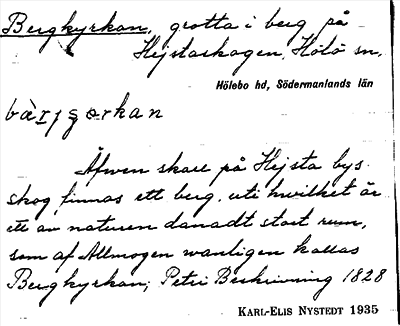 Bergkyrkan, grotta i berg på
Hejstaskogen, Hölö sn,
Hölebo hd, Södermanlands län
bàrjşərkan
Äfven skall på Hejsta bys
skog finnas ett berg, uti hwilket är
ett av naturen danadt stort rum,
som af Allmogen wanligen kallas
Bergkyrkan; Petri Beskrivning 1828
KARL-ELIS NYSTEDT 1935